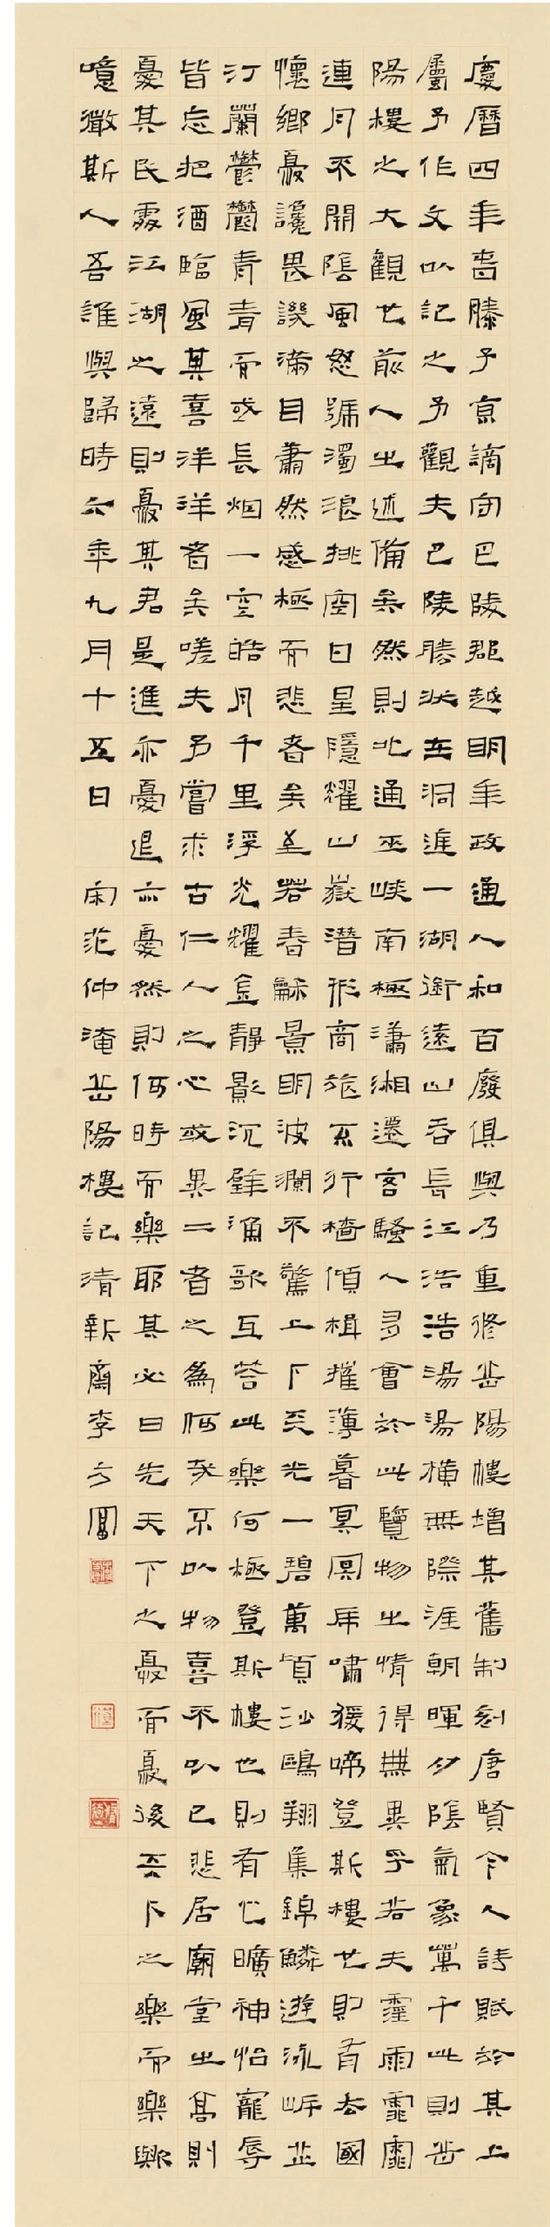 慶曆四年春滕子京謫守巴陵郡越明年政通人和百廢俱興乃重修岳陽樓增其舊制刻唐賢今人詩賦於其上
屬予作文以記之予觀夫巴陵勝狀在洞庭一湖銜遠山吞長江浩浩湯湯橫無際涯朝暉夕陰氣象萬千此則岳
陽樓之大觀也前人之述備矣然則北通巫峽南極瀟湘遷客騷人多會於此覽物之情得無異乎若夫霪雨霏霏
連月不開陰風怒號濁浪排空日星隱耀山嶽潛形商旅不行檣傾楫摧薄暮冥冥虎嘯猨啼登斯樓也則有去國
懷鄉憂讒畏譏滿目蕭然感極而悲者矣至若春龢景明波瀾不驚上下天光一碧萬頃沙鷗翔集錦鱗遊泳岸芷
汀蘭鬱鬱青青而或長烟一空皓月千里浮光耀金靜影沉璧漁歌互答此樂何極登斯樓也則有心曠神怡寵辱
皆忘把酒臨風其喜洋洋者矣嗟夫予嘗求古仁人之心或異二者之為何哉不以物喜不以己悲居廟堂之高則
憂其民處江湖之遠則憂其君是進亦憂退亦憂然則何時而樂耶其必曰先天下之憂而憂後天下之樂而樂歟
噫微斯人吾誰與歸時六年九月十五日 宋范仲淹岳陽樓記清新齋李方